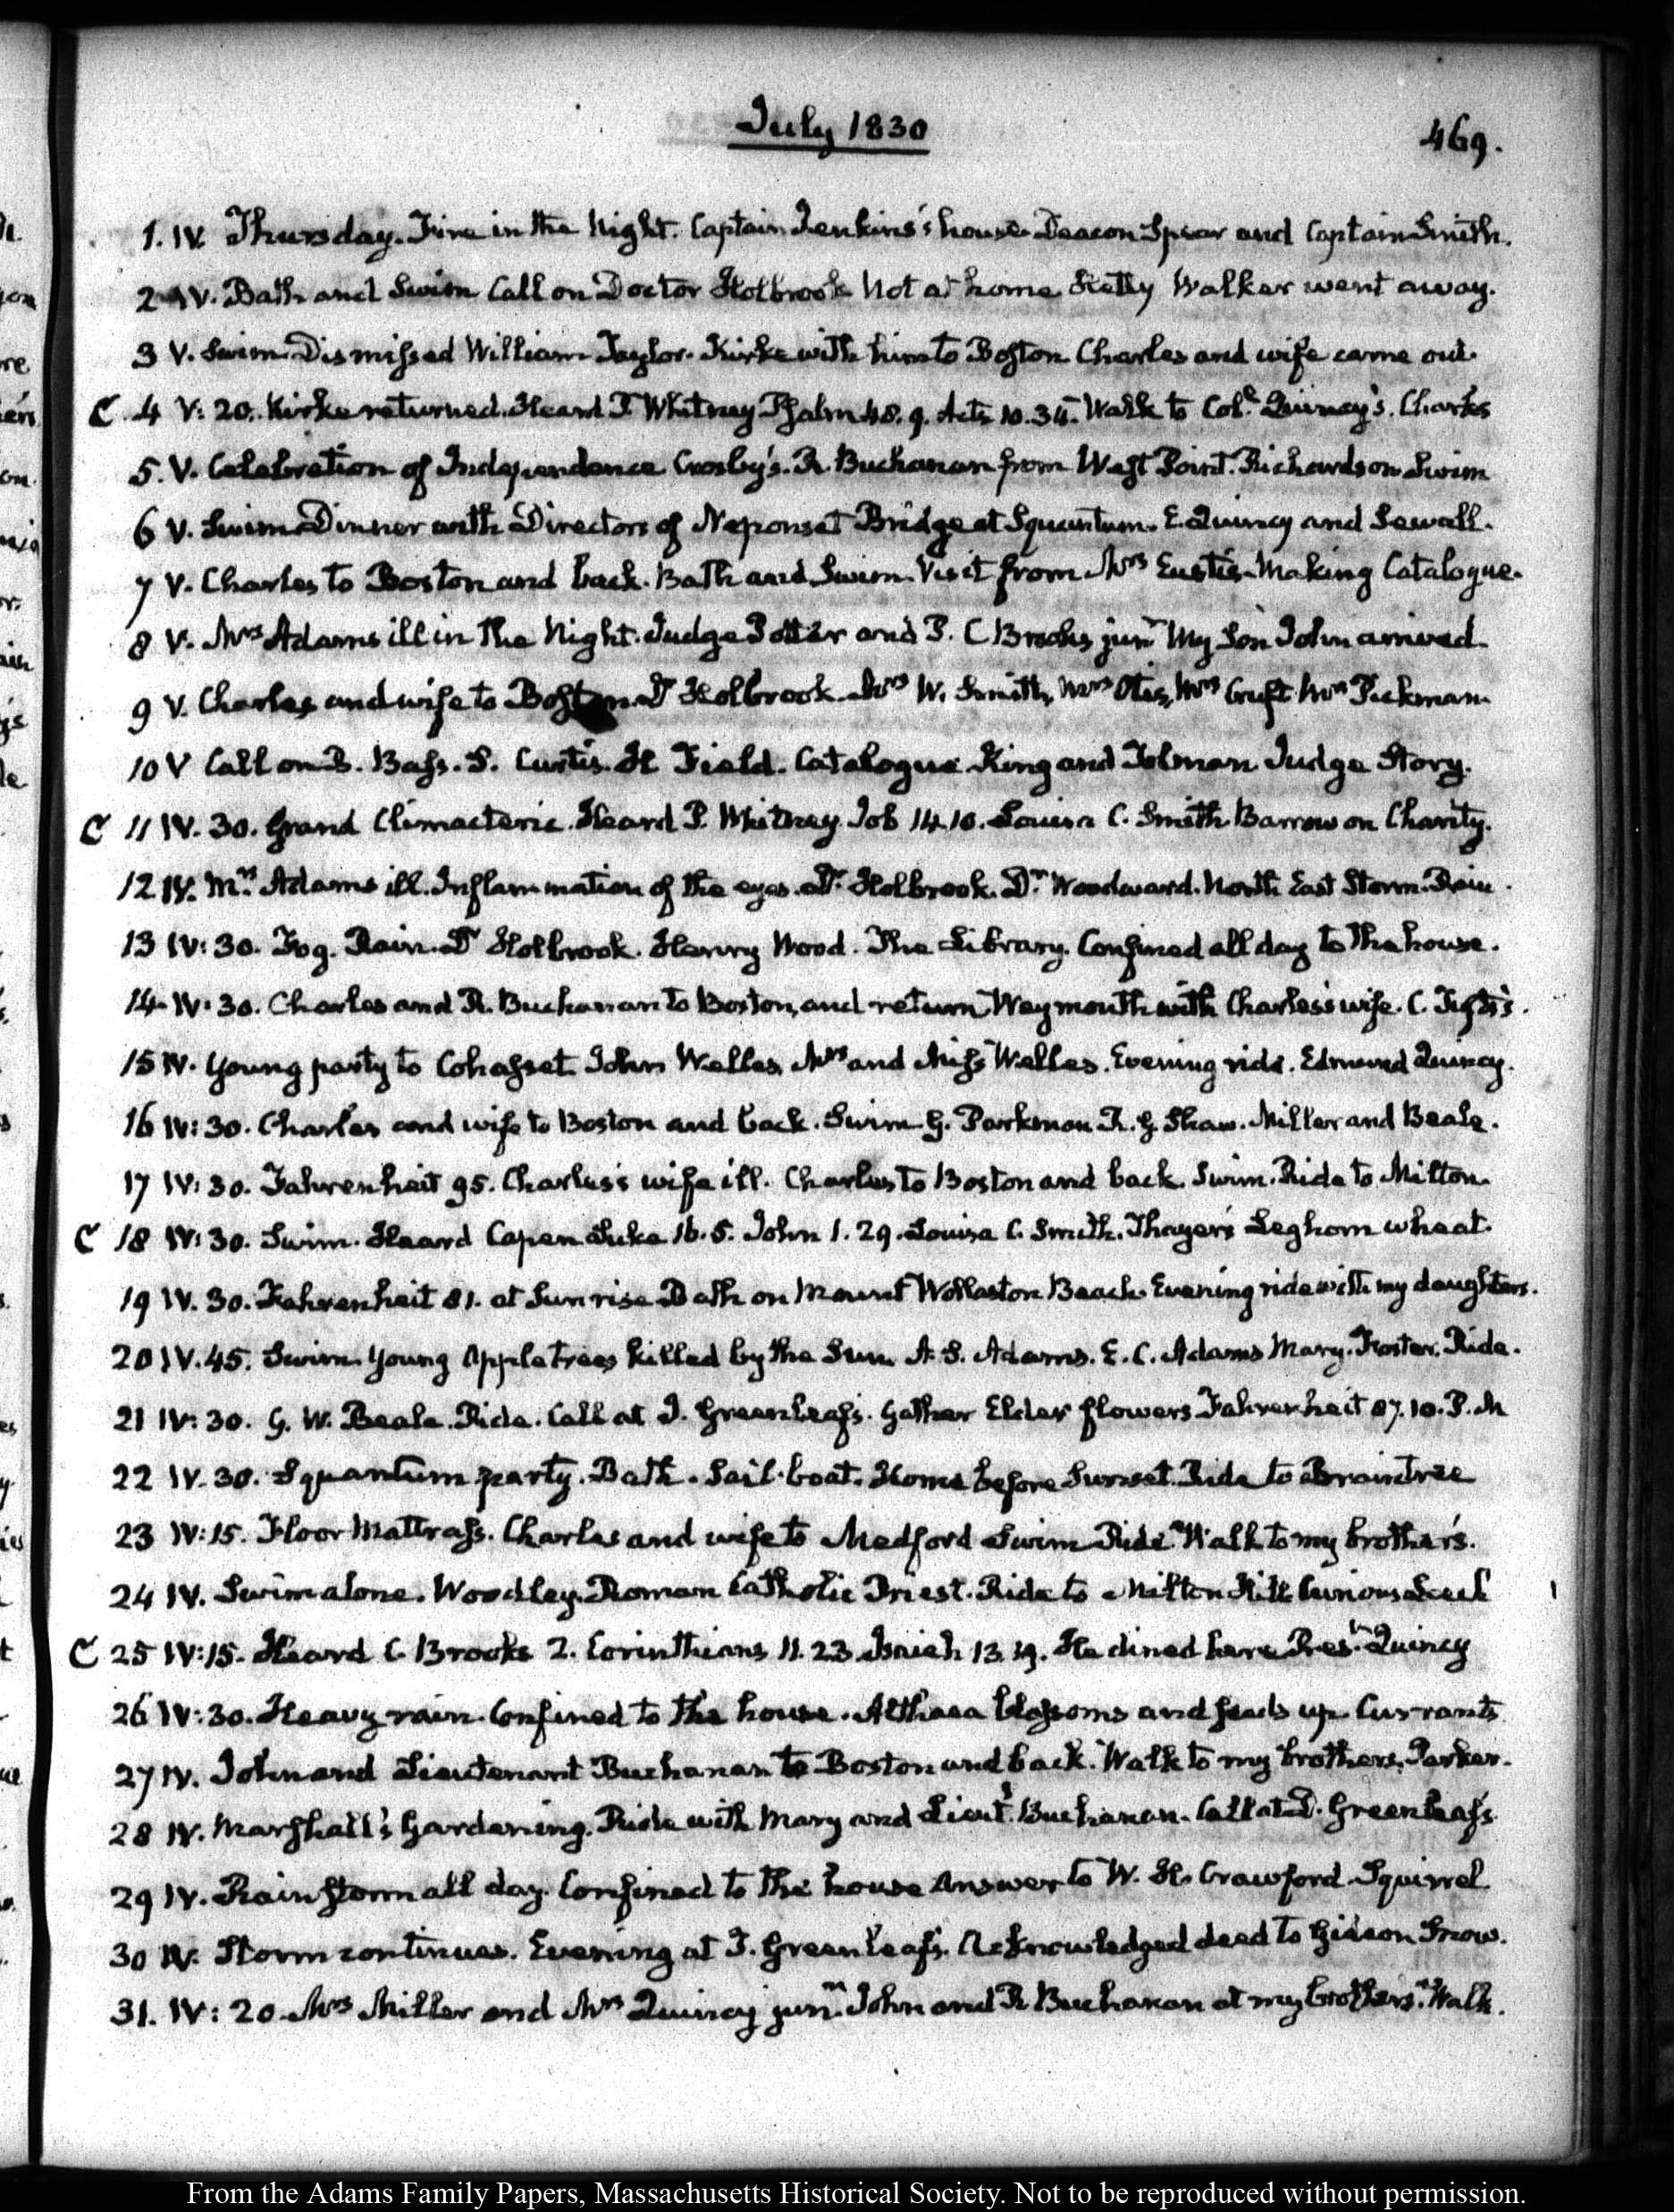 July 1830
469.
1. IV. Thursday. Fire in the Night. Captain Jenkins's house. Deacon Spear and Captain Smith.
2 IV. Bath and Swim Call on Doctor Holbrook Not at home Hetty Walker went away.
3 V. Swim. Dismissed William Taylor. Kirke with him to Boston Charles and wife came out.
C 4 V: 20. Kirke returned. Heard P. Whitney Psalm 48. 9. Acts 10. 34. Walk to Col.e Quincy's. Charles
5. V. Celebration of Independence Crosby's. R. Buchanan from West Point. Richardson Swim
6 V. Swim Dinner with Directors of Neponset Bridge at Squantum. E. Quincy and Sewall.
7 V. Charles to Boston and back. Bath and Swim. Visit from Mrs Eustis. Making Catalogue.
8 V. Mrs Adams ill in the Night. Judge Potter and P. C Brooks junr My Son John arrived.
9 V. Charles and wife to Boston. Dr Holbrook. Mrs W. Smith, Mrs Otis, Mrs Mrs Pickman.
10 V Call on B. Bass. S. Curtis. H Field. Catalogue. King and Tolman Judge Story.
C 11 IV. 30. Grand Climacteric. Heard P. Whitney Job 14. 10. Louisa C. Smith Barrow on Charity.
12 IV. Mrs Adams ill. Inflammation of the eyes. Dr Holbrook. Dr Woodward. North East Storm. Rain.
13 IV: 30. Fog. Rain. Dr Holbrook. Henry Wood. The Library. Confined all day to the house.
14 IV: 30. Charles and R. Buchanan to Boston, and return Weymouth with Charles's wife. C. Tufts's.
15 IV. Young party to Cohasset John Welles, Mrs and Miss Welles. Evening ride. Edmund Quincy.
16 IV: 30. Charles and wife to Boston and back. Swim G. Parkman R. G. Shaw. Miller and Beale.
17 IV: 30. Fahrenheit 95. Charles's wife ill. Charles to Boston and back. Swim. Ride to Milton.
C 18 IV: 30. Swim. Heard Capen Luke 16. 5. John 1. 29. Louisa C. Smith. Thayer's Leghorn wheat.
19 IV. 30. Fahrenheit 81. at Sunrise Bath on Mount Wollaston Beach. Evening ride with my daughters.
20 IV. 45. Swim. Young Apple trees killed by the Sun. A. S. Adams. E. C. Adams Mary. Foster. Ride.
21 IV: 30. G. W. Beale. Ride. Call at T. Greenleaf's. Gather Elder flowers Fahrenheit 87. 10. P. M
22 IV. 30. Squantum party. Bath. Sail-boat. Home before Sunset. Ride to Braintree
23 IV: 15. Floor Mattrass. Charles and wife to Medford Swim Ride Walk to my brother's.
24 IV. Swim alone. Woodley. Roman Catholic Priest. Ride to Milton Hill Curious
C 25 IV: 15. Heard C. Brooks 2. Corinthians 11. 23 Isaiah 13. 19. He dined here Prest Quincy
26 IV: 30. Heavy rain. Confined to the house. Althaea blossoms and up. Currants
27 IV. John and Lieutenant Buchanan to Boston and back. Walk to my brothers. Parker.
28 IV. Marshall's Gardening. Ride with Mary and Lieut. Buchanan. Call at D. Greenleaf's
29 IV. Rain storm all day. Confined to the house Answer to W. H. Crawford. Squirrel
30 IV. Storm continues. Evening at T. Greenleaf's. Acknowledged deed to Gideon Snow.
31. IV: 20. Mrs Miller and Mrs Quincy junr. John and R Buchanan at my brother's. Walk.
From the Adams Family Papers, Massachusetts Historical Society. Not to be reproduced without permission.